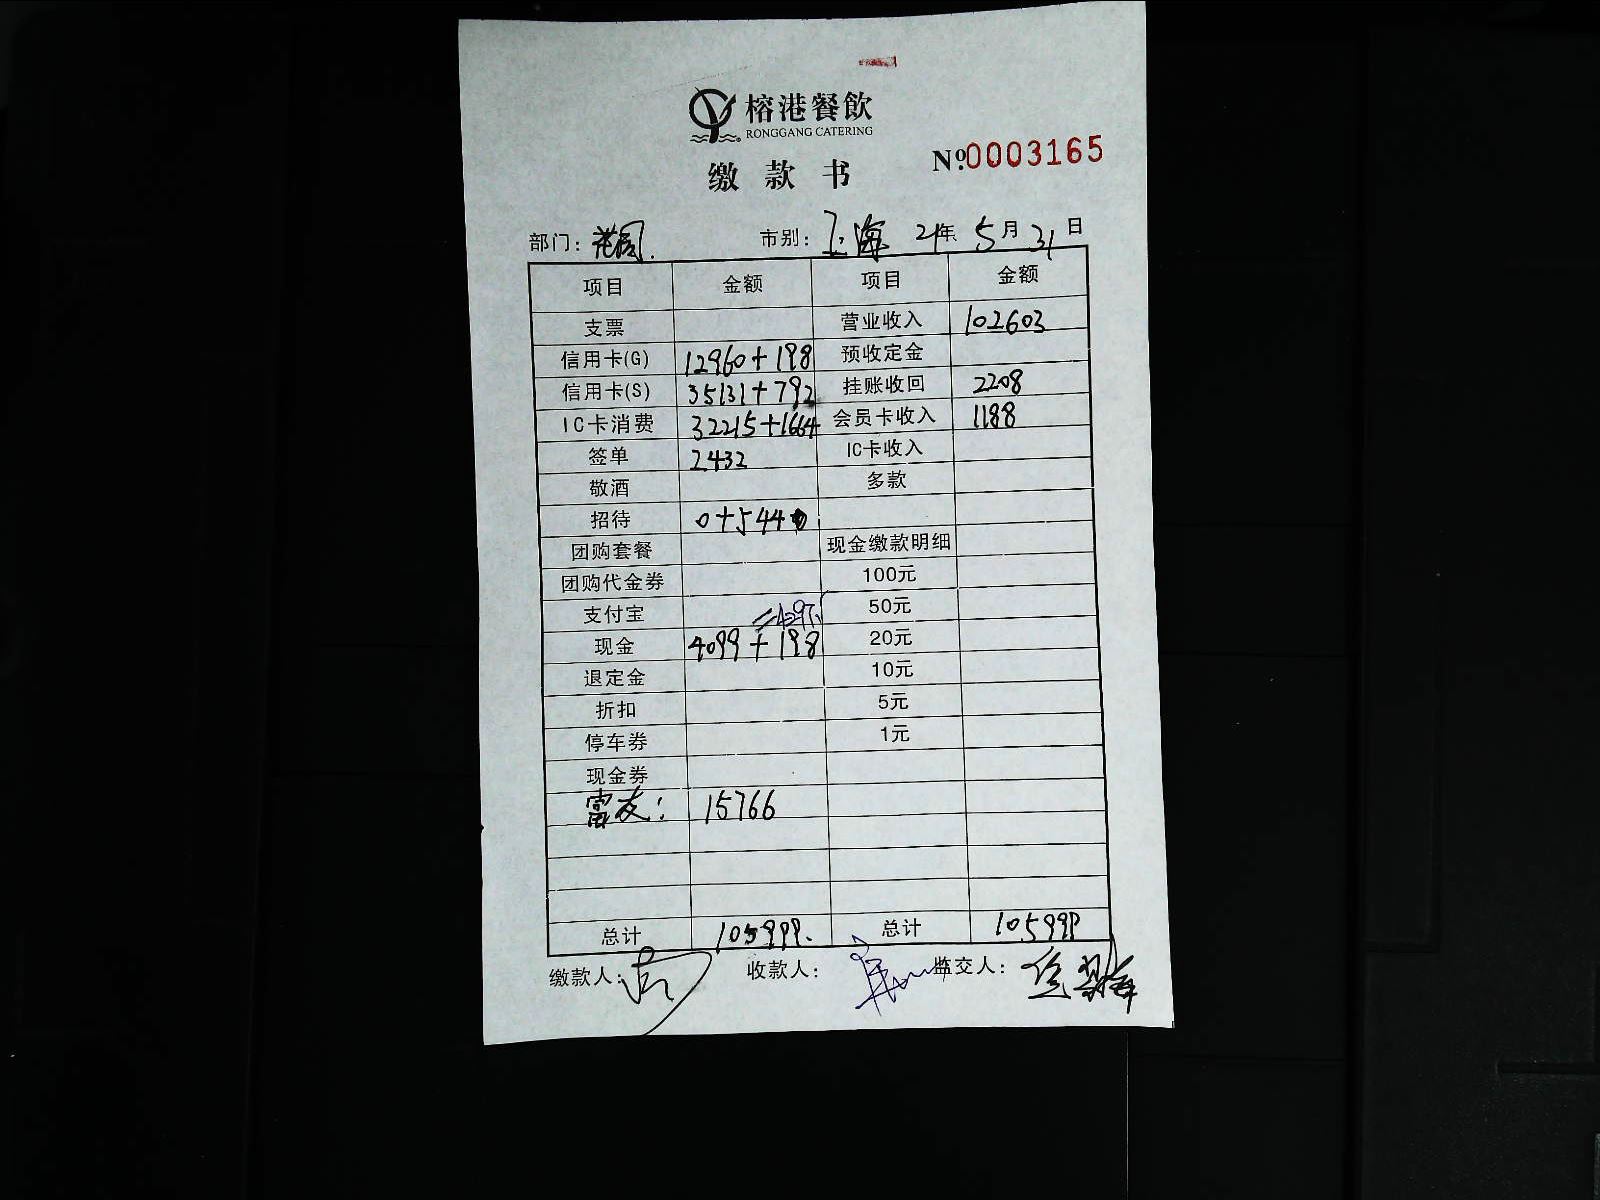 榕港餐飲
RONGGANG CATERING
缴款书
№0003165
部门: 花园. 市别: 上海 21年 5月 31日
项目 金额 项目 金额
支票 营业收入 102603
信用卡(G) 12960+198 预收定金
信用卡(S) 35131+792 挂账收回 2208
IC卡消费 32215+1664 会员卡收入 1188
签单 2432 IC卡收入
敬酒 多款
招待 0+544
团购套餐 现金缴款明细
团购代金券 100元
支付宝 =4297. 50元
现金 4099+198 20元
退定金 10元
折扣 5元
停车券 1元
现金券
雷友: 15766
总计 105999. 总计 105999
缴款人: 收款人: 监交人: